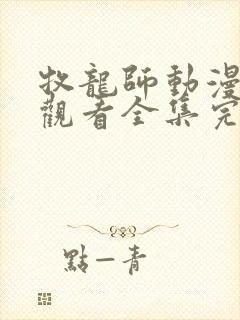 牧龍師動漫
觀看全集完
點一青